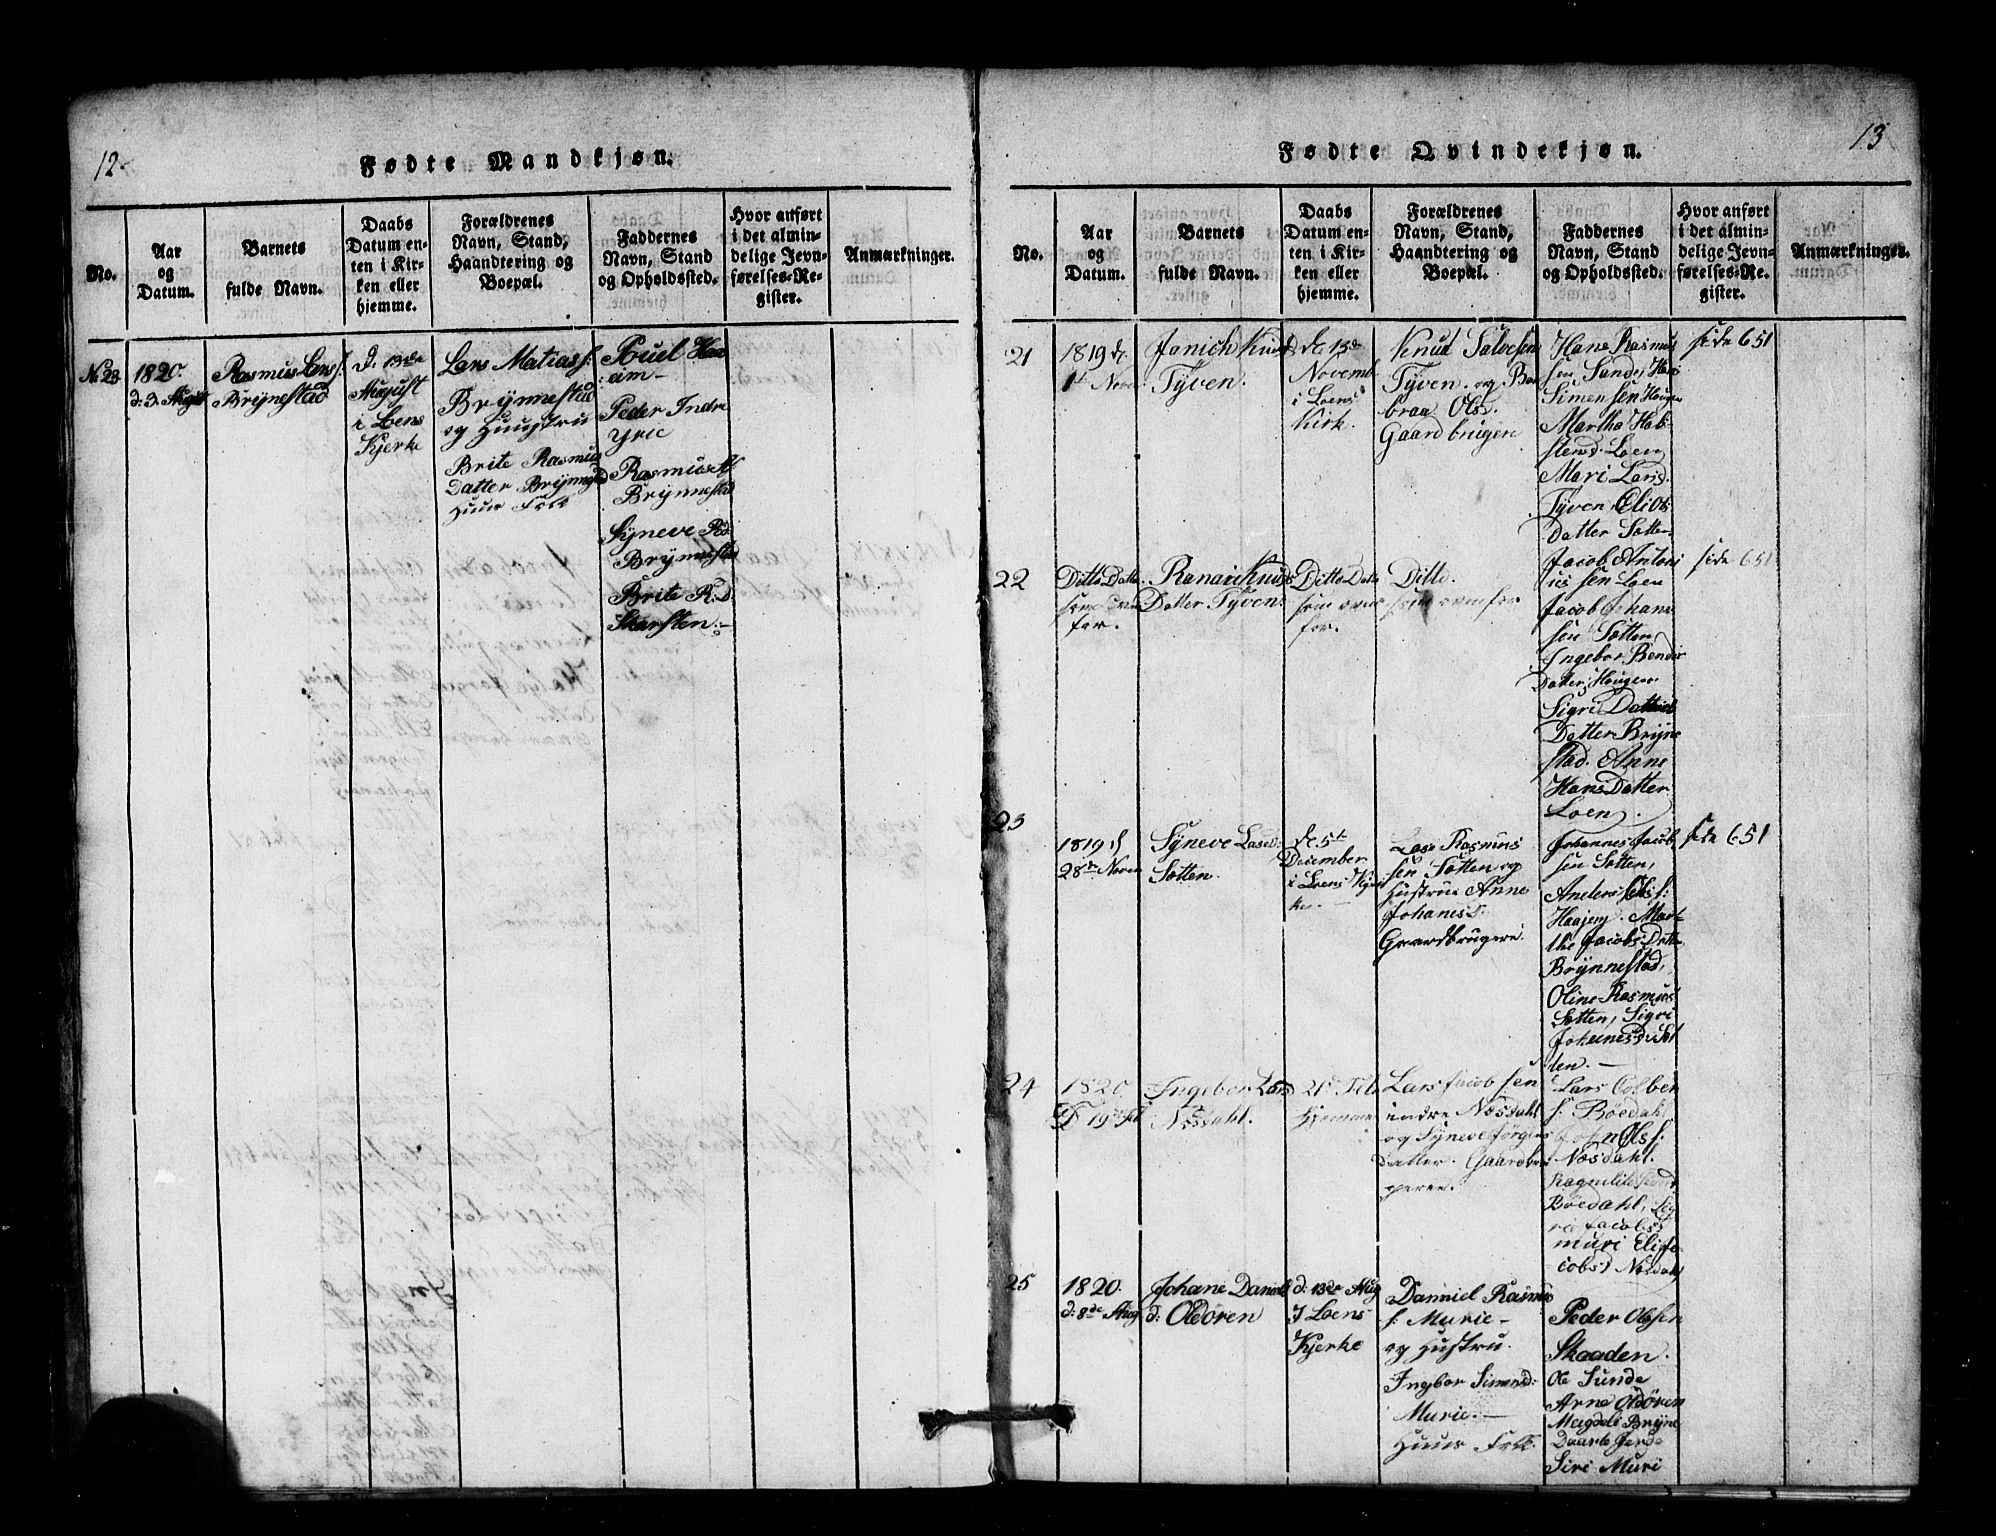 12.
Fødte Mandkjøn.
No.
Aar
og
Datum.
Barnets
fulde Navn.
Daabs
Datum en-
ten i Kir-
ken eller
hjemme.
Forældrenes
Navn, Stand,
Haandtering og
Boepæl.
Faddernes
Navn, Stand
og Opholdssted.
Hvor anført
i det almin-
delige Jevn-
førelses-Re-
gister.
Anmærkninger.
No 23
1820.
d: 3. Augst
Rasmus Lars s:
Brynestad
d. 13de
August
i Loens
Kjerke
Lars Matias s:
Brynnestad
og Huustru
Brite Rasmus
Datter Brynnestad
Huus Folk
Pouel
Peder Indre
Yrie
Rasmus
Brynnestad
Syneve Rd
Brynnestad
Brite R.d.
Skarsten.
13
Fødte Qvindekjøn.
No.
Aar
og
Datum.
Barnets
fulde Navn.
Daabs
Datum en-
ten i Kir-
ken eller
hjemme.
Forældrenes
Navn, Stand,
Haandtering og
Boepæl.
Faddernes
Navn, Stand
og Opholdssted.
Hvor anført
i det almin-
delige Jevn-
førelses-Re-
gister.
Anmærkninger.
21
1819 de
1t Nove.
Janich Knud
Tyven.
de 15de
Novemb
i Loens
Kirk.
Knud Salvesen
Tyven. og Bar
braa Olsd.
Gaardbrugere
Hans Rasmus
sen Sunde,
Simensen Hougen
Martha
Loen
Mari Larsd.
Tyven, Eli Ols
Datter Sætten
side 651
22
Ditto Datto
som oven
for.
Ranari Knuds
Datter Tyven.
Ditto Dato
som oven
for.
Ditto.
som ovenfor
Jacob Antoni
us sen Loen
Jacob Johane
sen Sætten
Ingebor Bendix
Datter, Hougen
Sigri
Datter Bryne
stad. Anne
Hans Datter
Loen.
side 651
23
1819 d
28de Novem
Syneve Lased:
Sætten.
de 5te
December
i Loens Kjer
ke.
Lase Rasmus
sen Sætten og
Hustrue Anne
Johanesd.
Gaardbrugere.
Johannes Jacob
sen Sætten,
Anders
Haajem. Mar-
the Jacobs Datter
Brynnestad,
Oline Rasmus
Sætten, Sigri
Johannesd. Sæt
ten.
side 651
24
1820
D 19de Feb
Ingebor Larsd
Næsdahl.
21de Feb
Hjemme
Lars Jacobsen
indre Næsdahl
og Syneve Jørgens
Datter. Gaardbru
gere.
Lars Colben
s: Bødahl,
John Ols s:
Næsdahl.
Bødahl, Sig
ri Jacobsd
muri Eli Ja
cobsd Næsdahl
25
1820.
d: 8de Aug
Johane Daniels
d: Oldøren
d: 13de Aug
I Loens
Kjerke
Danniel Rasmus
s: Murie
og Hustru.
Ingbor Simensd:
Murie.
Huus Folk.
Peder Olssen
Skaaden.
Ole Sunde
Arne Oldøren
Magdeli Bryne
Daarte Gerde
Siri Muri